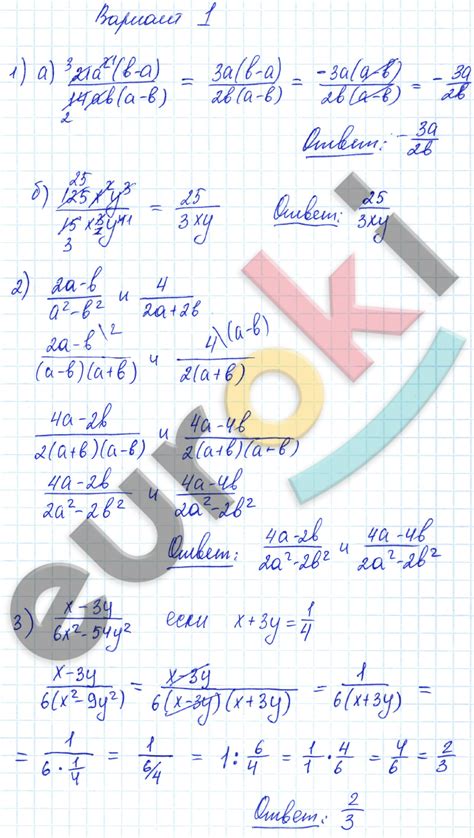 Вариант 1
1) а) 21a²(в-a)/14aв(a-в) = 3a(в-a)/2в(a-в) = -3a(a-в)/2в(a-в) = -3a/2в
Ответ: -3a/2в
б) = 25/3xy Ответ: 25/3xy
2) 2a-в/a²-в² и 4/2a+2в
2a-в\2/(a-в)(a+в) и 4\(a-в)/2(a+в)
4a-2в/2(a+в)(a-в) и 4a-4в/2(a+в)(a-в)
4a-2в/2a²-2в² и 4a-4в/2a²-2в²
Ответ: 4a-2в/2a²-2в² и 4a-4в/2a²-2в²
3) x-3y/6x²-54y² если x+3y=1/4
x-3y/6(x²-9y²) = x-3y/6(x-3y)(x+3y) = 1/6(x+3y) =
= 1/6·1/4 = 1/6/4 = 1:6/4 = 1/1·4/6 = 4/6 = 2/3
Ответ: 2/3
euroki